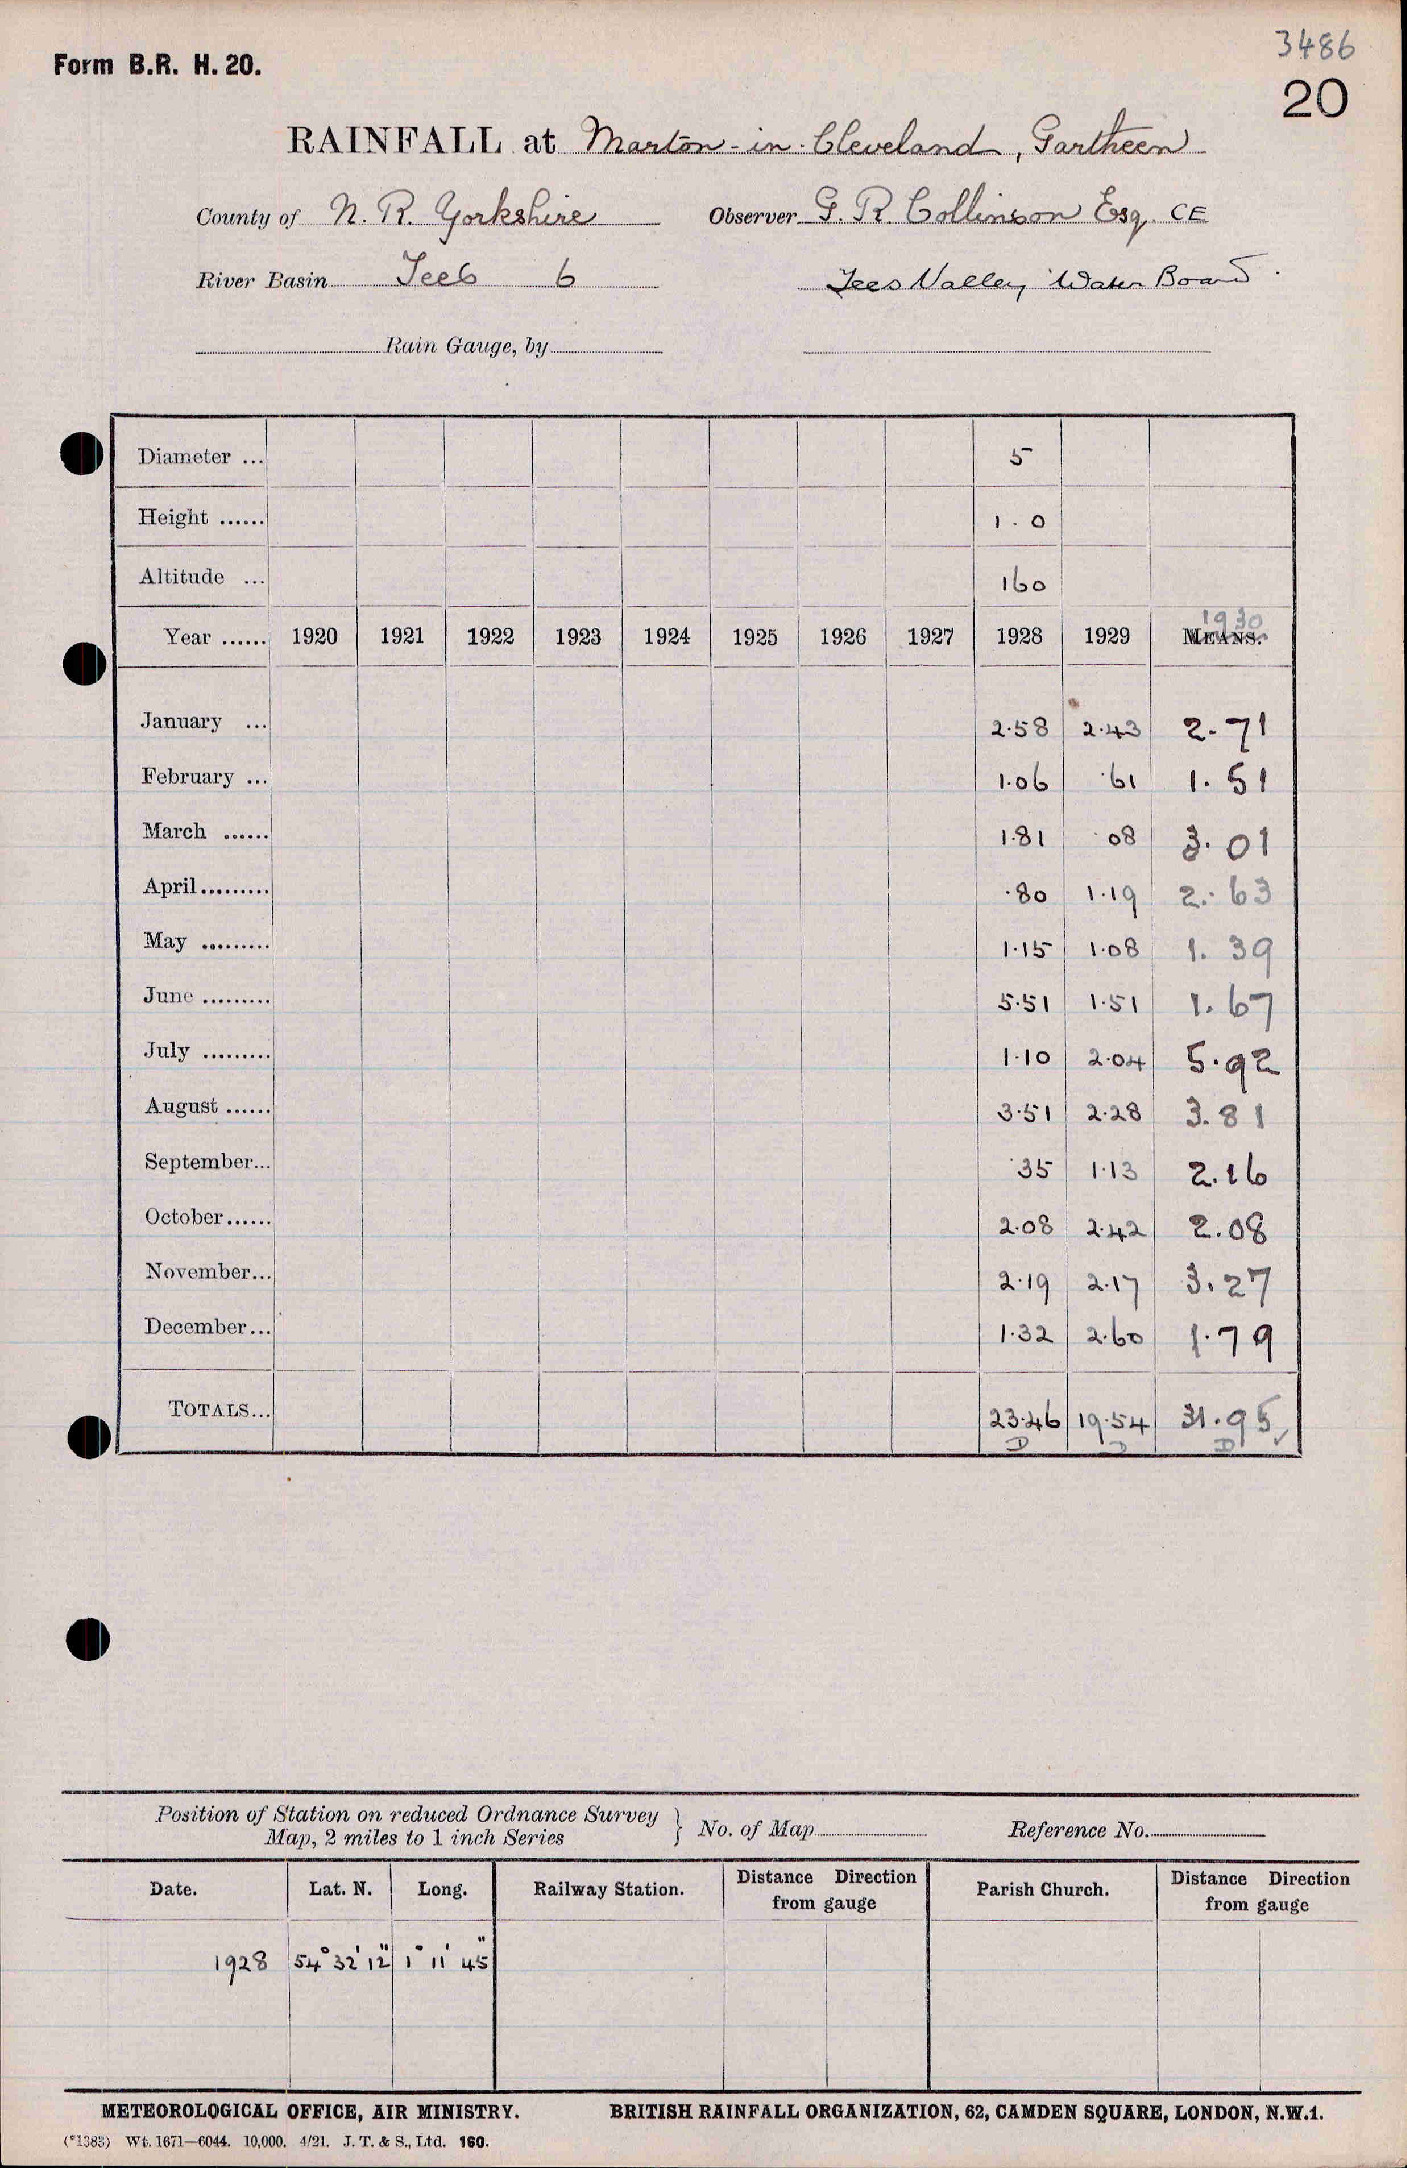 3486
Form B.R. H. 20.
20
RAINFALL at Marton-in-Cleveland, Gartheen
County of N. R. Yorkshire Observer G. R. Collinson Esq. CE
River Basin Tees 6 Tees Valley Water Board.
Rain Gauge, by
Diameter ... 5
Height ...... 1.0
Altitude ... 160
1930
Year ...... 1920 1921 1922 1923 1924 1925 1926 1927 1928 1929 MEANS.
January ... 2.58 2.43 2.71
February ... 1.06 .61 1.51
March ...... 1.81 .08 3.01
April......... .80 1.19 2.63
May ......... 1.15 1.08 1.39
June ......... 5.51 1.51 1.67
July ......... 1.10 2.04 5.92
August ...... 3.51 2.28 3.81
September... .35 1.13 2.16
October...... 2.08 2.42 2.08
November... 2.19 2.17 3.27
December... 1.32 2.60 1.79
TOTALS... 23.46 19.54 31.95 ✓
D D D
Position of Station on reduced Ordnance Survey
Map, 2 miles to 1 inch Series } No. of Map Reference No.
Date. Lat. N. Long. Railway Station. Distance Direction from gauge Parish Church. Distance Direction from gauge
1928 54° 32' 12" 1° 11' 45"
METEOROLOGICAL OFFICE, AIR MINISTRY. BRITISH RAINFALL ORGANIZATION, 62, CAMDEN SQUARE, LONDON, N.W.1.
(*1383) Wt. 1671—6044. 10,000. 4/21. J. T. & S., Ltd. 160.